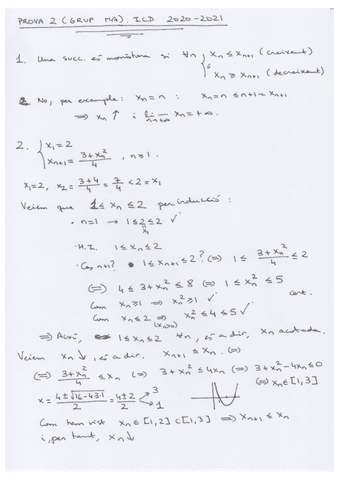 PROVA 2 (GRUP MA). ICD 2020-2021
1. Una succ. és monòtona si ∀n { xn ≤ xn+1 (creixent)
ó
xn ≥ xn+1 (decreixent)
No, per example: xn = n : xn = n ≤ n+1 = xn+1
⇒ xn ↑ i lim n→+∞ xn = +∞.
2. { x1 = 2
xn+1 = (3 + xn²)/4 , n ≥ 1.
x1 = 2, x2 = (3+4)/4 = 7/4 < 2 = x1
Veiem que 1 ≤ xn ≤ 2 per inducció:
· n=1 → 1 ≤ 2 ≤ 2 ✓
x1
· H.I. 1 ≤ xn ≤ 2
· Cas n+1? • 1 ≤ xn+1 ≤ 2? ⇔ 1 ≤ (3 + xn²)/4 ≤ 2
⇔ 4 ≤ 3 + xn² ≤ 8 ⇔ 1 ≤ xn² ≤ 5
Com xn ≥ 1 ⇒ xn² ≥ 1 ✓ cert.
Com xn ≤ 2 ⇒ xn² ≤ 4 ≤ 5 ✓
(xn ≥ 0)
⇒ Així, 1 ≤ xn ≤ 2 ∀n, és a dir, xn acotada.
Veiem xn ↓, és a dir, xn+1 ≤ xn. ⇔
⇔ (3 + xn²)/4 ≤ xn ⇔ 3 + xn² ≤ 4xn ⇔ 3 + xn² - 4xn ≤ 0
⇔ xn ∈ [1, 3]
x = (4 ± √(16 - 4·3·1))/2 = (4 ± 2)/2 3
1
Com hem vist xn ∈ [1, 2] ⊂ [1, 3] ⇒ xn+1 ≤ xn
i, per tant, xn ↓